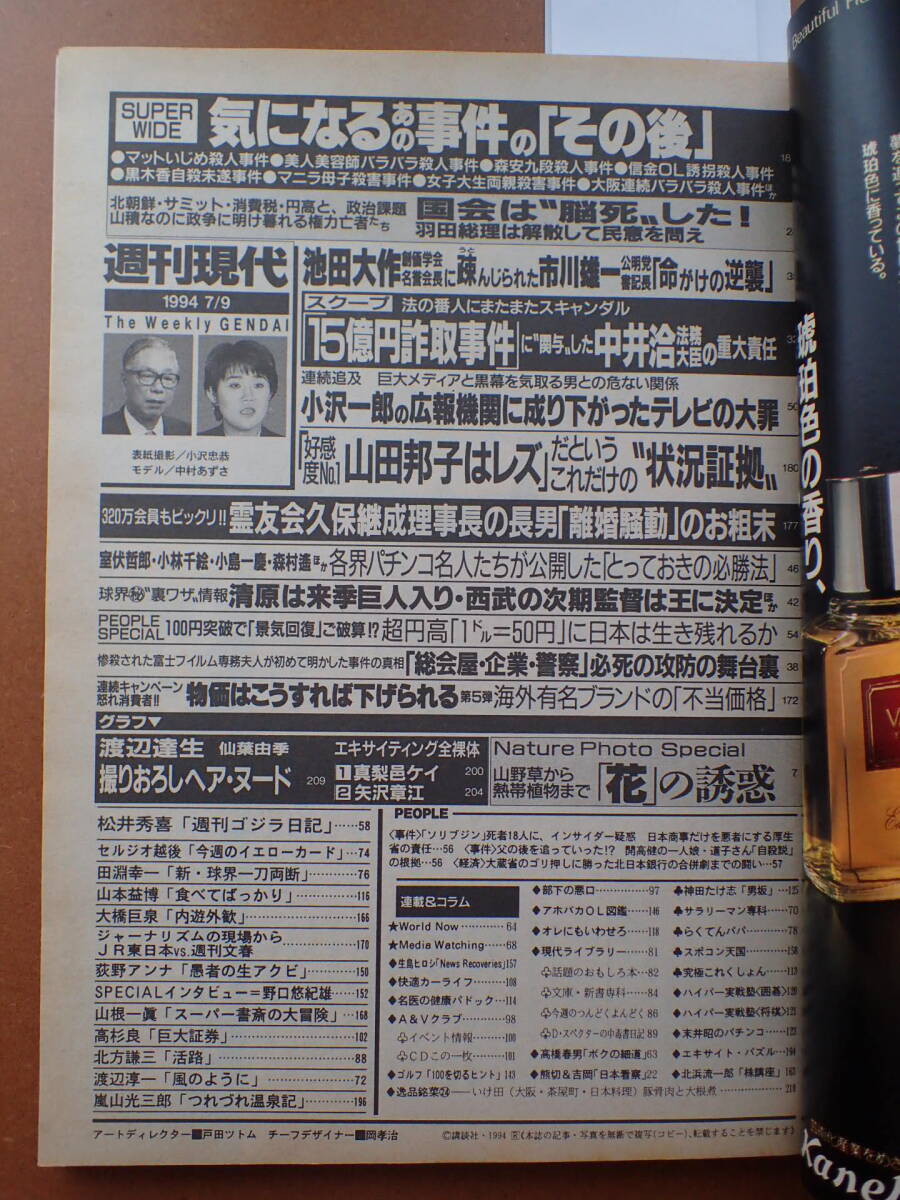 SUPER WIDE 気になるあの事件の「その後」
●マットいじめ殺人事件●美人美容師バラバラ殺人事件●森安九段殺人事件●信金OL誘拐殺人事件
●黒木香自殺未遂事件●マニラ母子殺害事件●女子大生両親殺害事件●大阪連続バラバラ殺人事件ほか
18
北朝鮮・サミット・消費税・円高と、政治課題
山積なのに政争に明け暮れる権力亡者たち
国会は“脳死”した!
羽田総理は解散して民意を問え
週刊現代
1994 7/9
The Weekly GENDAI
表紙撮影/小沢忠恭
モデル/中村あずさ
池田大作創価学会名誉会長に疎んじられた市川雄一公明党書記長「命がけの逆襲」
うと
スクープ 法の番人にまたまたスキャンダル
「15億円詐取事件」に“関与”した中井洽法務大臣の重大責任 32
連続追及 巨大メディアと黒幕を気取る男との危ない関係
小沢一郎の広報機関に成り下がったテレビの大罪 50
「好感度No.1山田邦子はレズ」だというこれだけの“状況証拠” 180
320万会員もビックリ!! 霊友会久保継成理事長の長男「離婚騒動」のお粗末 177
室伏哲郎・小林千絵・小島一慶・森村遙ほか 各界パチンコ名人たちが公開した「とっておきの必勝法」 46
球界㊙“裏ワザ”情報 清原は来季巨人入り・西武の次期監督は王に決定ほか 42
PEOPLE SPECIAL 100円突破で「景気回復」ご破算!? 超円高「1ドル=50円」に日本は生き残れるか 54
惨殺された富士フイルム専務夫人が初めて明かした事件の真相 「総会屋・企業・警察」必死の攻防の舞台裏 38
連続キャンペーン 怒れ消費者!! 物価はこうすれば下げられる 第5弾 海外有名ブランドの「不当価格」 172
グラフ▼
渡辺達生 仙葉由季
撮りおろしヘア・ヌード 209
エキサイティング全裸体
1 真梨邑ケイ 200
2 矢沢章江 204
Nature Photo Special
山野草から熱帯植物まで「花」の誘惑 7
松井秀喜「週刊ゴジラ日記」……58
セルジオ越後「今週のイエローカード」…74
田淵幸一「新・球界一刀両断」…………76
山本益博「食べてばっかり」…………116
大橋巨泉「内遊外歓」…………166
ジャーナリズムの現場から
JR東日本vs.週刊文春…………170
荻野アンナ「愚者の生アクビ」………150
SPECIALインタビュー=野口悠紀雄……152
山根一眞「スーパー書斎の大冒険」…168
高杉良「巨大証券」…………102
北方謙三「活路」…………88
渡辺淳一「風のように」…………72
嵐山光三郎「つれづれ温泉記」………196
PEOPLE
〈事件〉「ソリブジン」死者18人に、インサイダー疑惑 日本商事だけを悪者にする厚生
省の責任…56 〈事件〉父の後を追っていった!? 開高健の一人娘・道子さん「自殺説」
の根拠…56 〈経済〉大蔵省のゴリ押しに勝った北日本銀行の合併劇までの闘い…57
連載&コラム
★World Now…………64
★Media Watching……68
◆生島ヒロシ「News Recoveries」157
◆快適カーライフ…………108
◆名医の健康パドック…114
◆A&Vクラブ…………98
♧イベント情報…………100
♧CDこの一枚…………101
◆ゴルフ「100を切るヒント」143
◆部下の悪口…………97
◆アホバカOL図鑑……146
◆オレにもいわせろ……118
◆現代ライブラリー……81
♧話題のおもしろ本…82
♧文庫・新書専科……84
♧今週のつんどくよんどく86
♧D・スペクターの中毒書日記89
◆高橋春男「ボクの細道」63
◆熊切&吉岡「日本看察」22
♣神田たけ志「男坂」…125
♣サラリーマン専科……70
♣らくてんパパ…………78
♣スポコン天国…………158
♣究極これくしょん……113
◆ハイパー実戦塾〈囲碁〉120
◆ハイパー実戦塾〈将棋〉121
◆末井昭のパチンコ……123
◆エキサイト・パズル…194
◆北浜流一郎「株講座」163
◆逸品銘菜㉔――いけ田(大阪・茶屋町・日本料理)豚骨肉と大根煮…………218
アートディレクター■戸田ツトム チーフデザイナー■岡孝治
©講談社・1994 Ⓡ〈本誌の記事・写真を無断で複写(コピー)、転載することを禁じます〉
Beautiful
琥珀色に香っている。
琥珀色の香り、
Kane